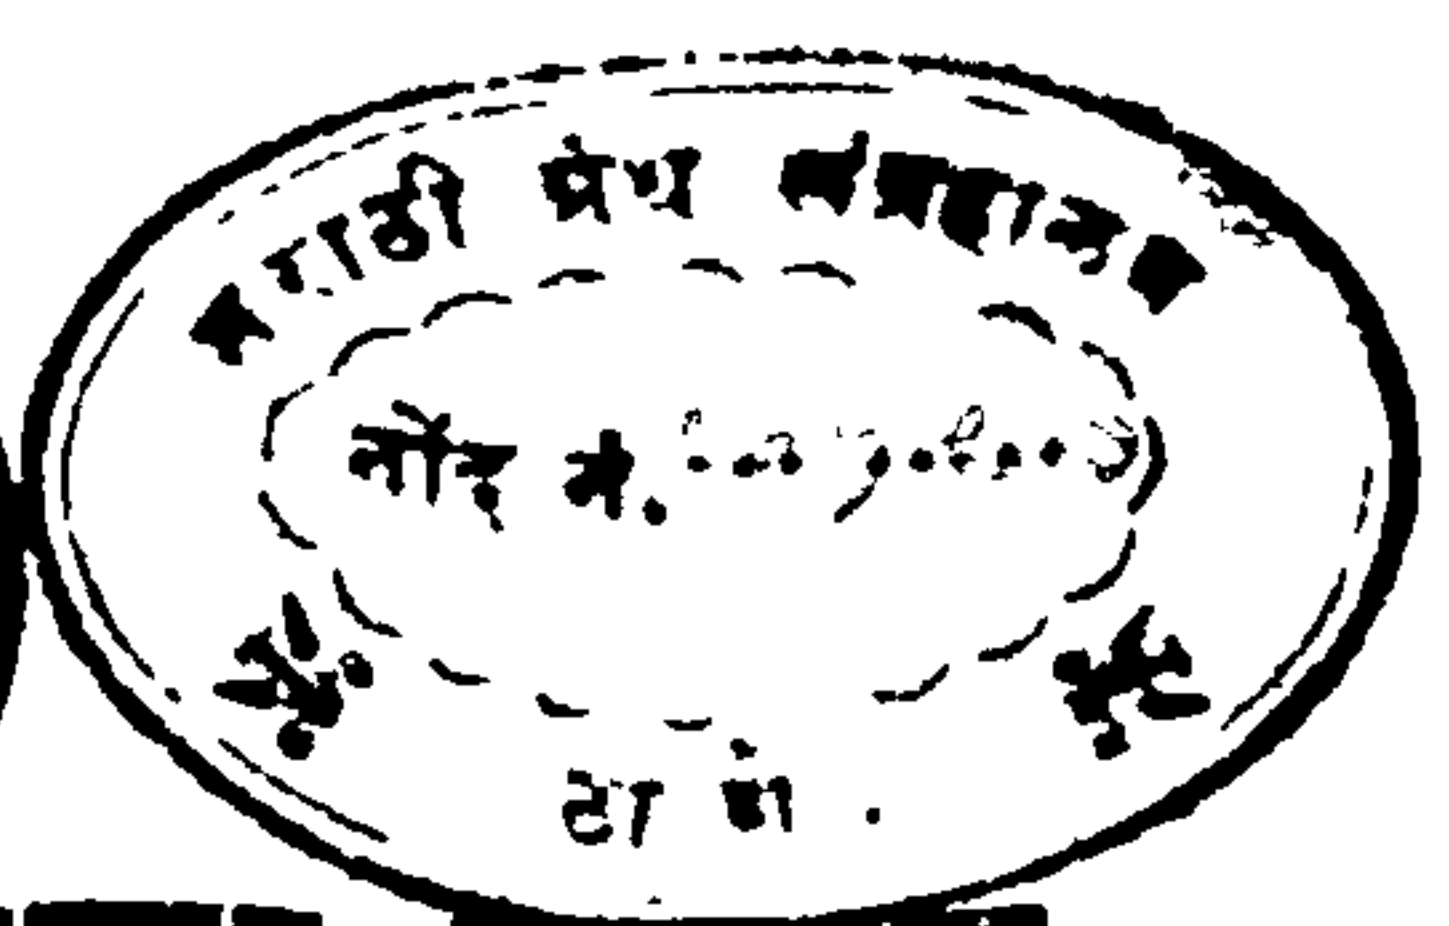 मराठी ग्रंथ संग्रहालय
नोंद नं.
ठाणें.